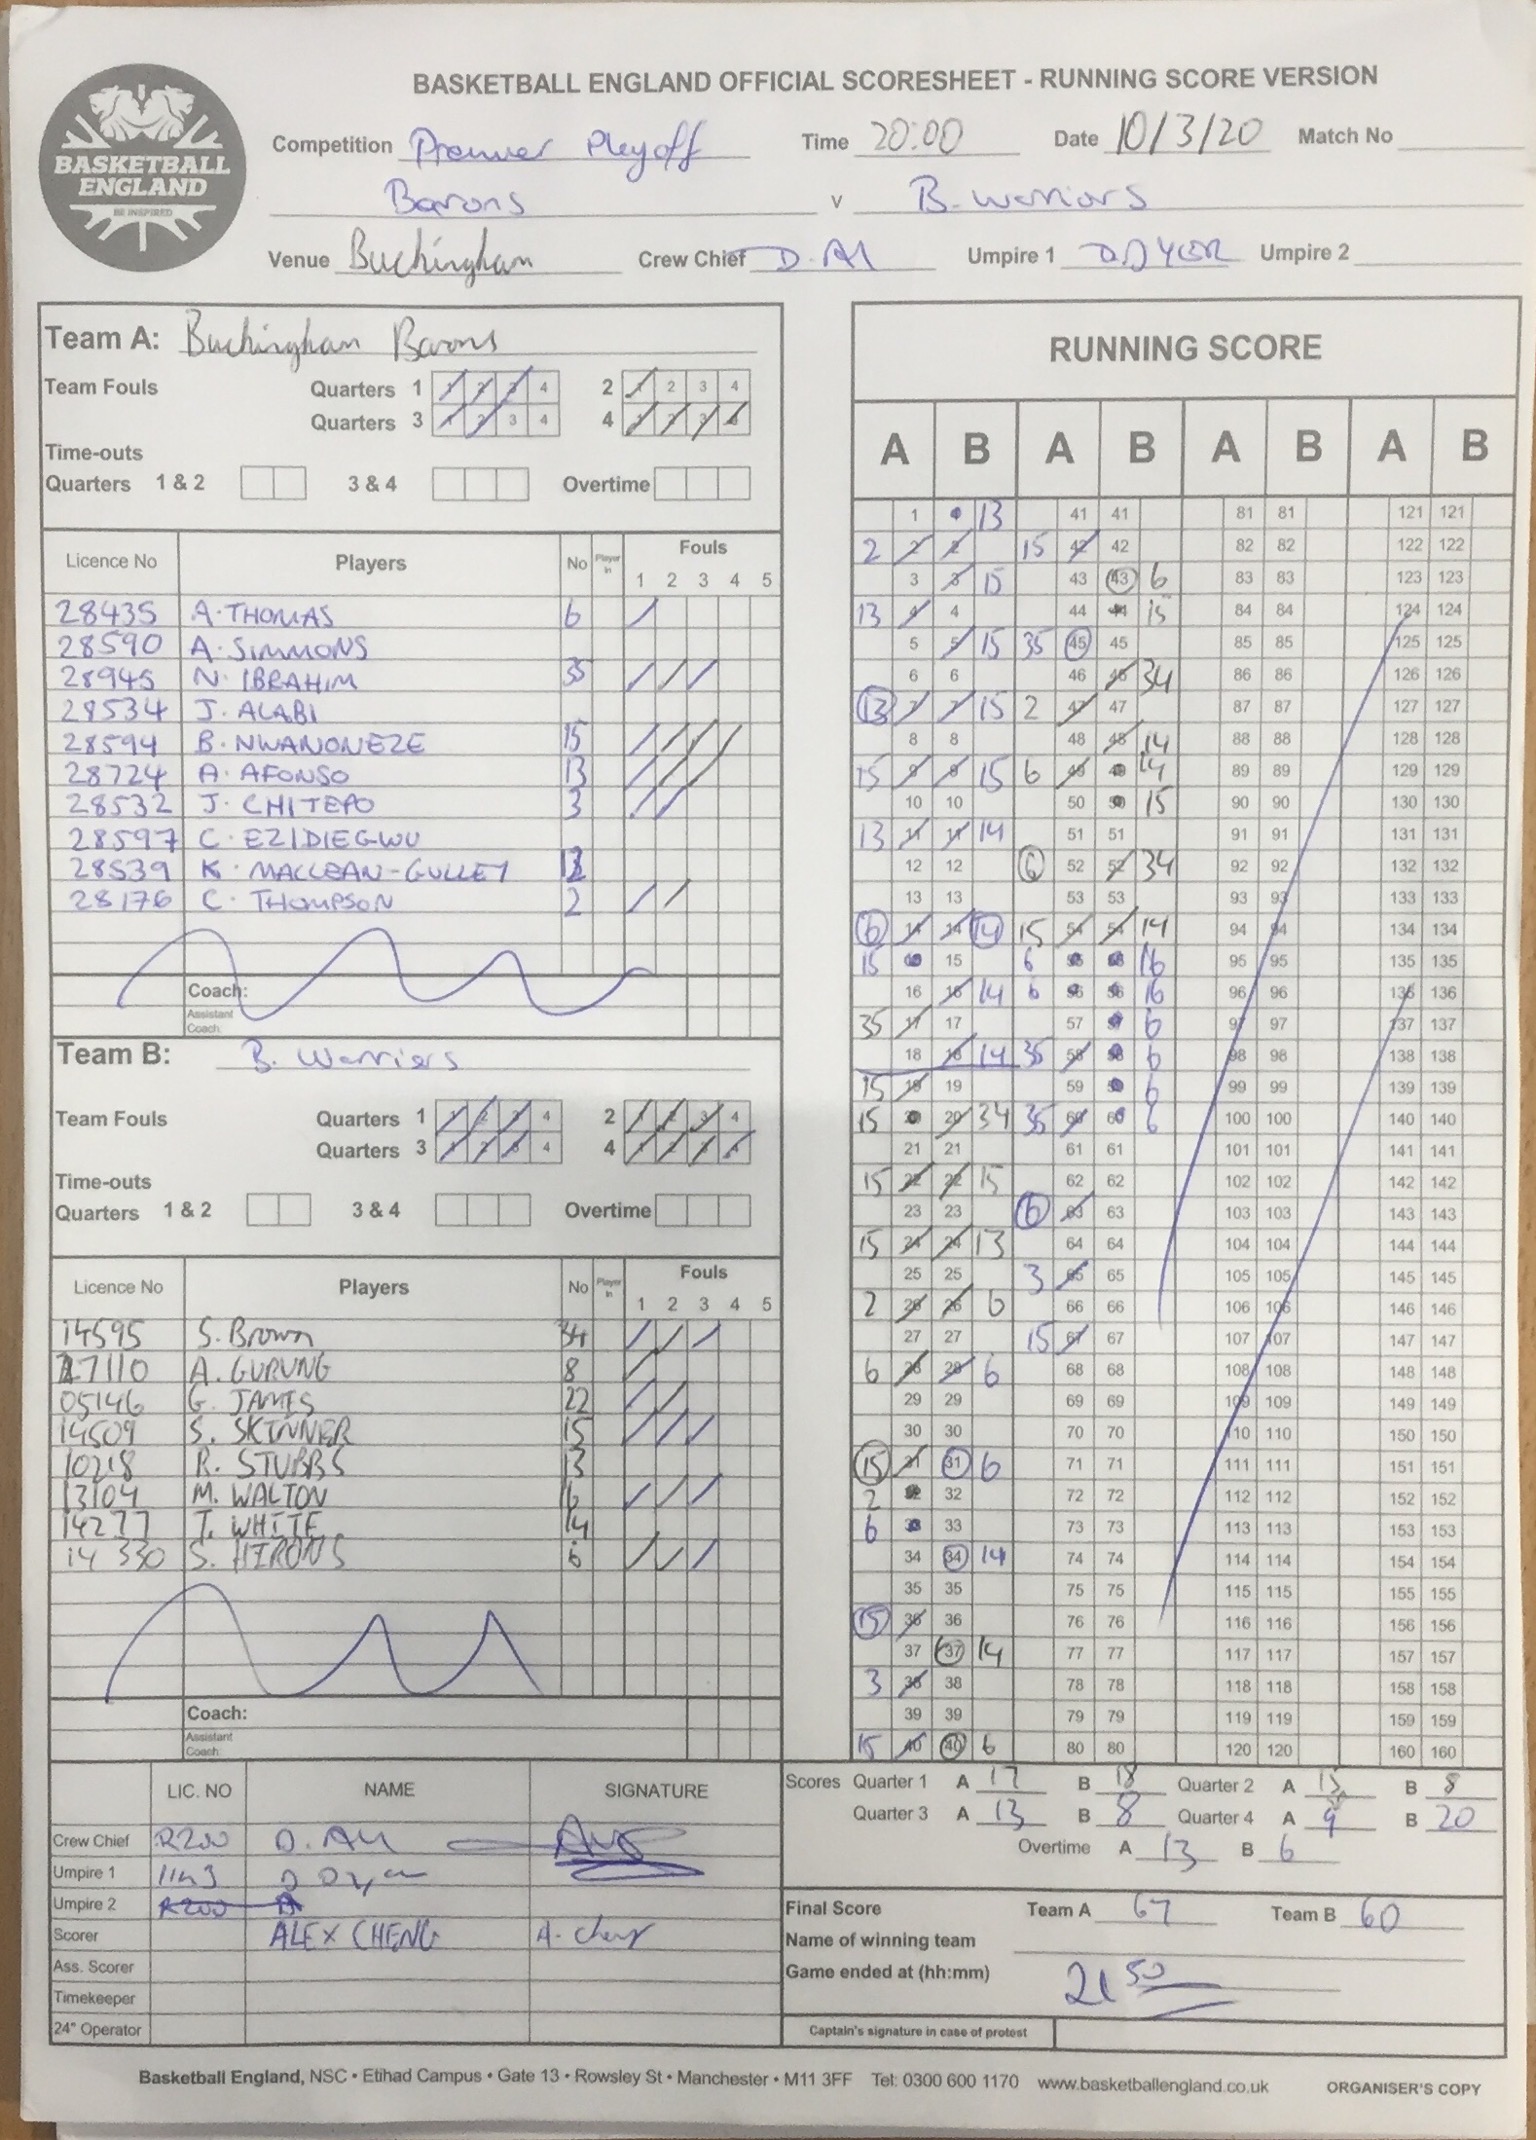 BASKETBALL ENGLAND OFFICIAL SCORESHEET - RUNNING SCORE VERSION
BASKETBALL
ENGLAND
BE INSPIRED
Competition Premier Playoff Time 20:00 Date 10/3/20 Match No
Barons v B. Warriors
Venue Buckingham Crew Chief D. Umpire 1 Umpire 2
Team A: Buckingham Barons
Team Fouls Quarters 1 1 2 3 4 2 1 2 3 4
Quarters 3 1 2 3 4 4 1 2 3 4
Time-outs
Quarters 1 & 2 3 & 4 Overtime
Licence No Players No Player in Fouls
1 2 3 4 5
28435 A. THOMAS 6
28590 A. SIMMONS
28945 N. IBRAHIM 35
28534 J. ALABI
28594 B. NWANONEZE 15
28724 A. AFONSO 13
28532 J. CHITEPO 3
28597 C. EZIDIEGWU
28539 K. MACLEAN-GULLEY
28176 C. THOMPSON 2
Coach:
Assistant Coach:
Team B: B. Warriors
Team Fouls Quarters 1 1 2 3 4 2 1 2 3 4
Quarters 3 1 2 3 4 4 1 2 3 4
Time-outs
Quarters 1 & 2 3 & 4 Overtime
Licence No Players No Player in Fouls
1 2 3 4 5
14595 S. Brown 34
27110 A. GURUNG 8
05146 G. JAMES 22
14509 S. SKINNER 15
10218 R. STUBBS 13
13104 M. WALTON 16
14277 T. WHITE 14
14330 S. HIRONS 6
Coach:
Assistant Coach:
LIC. NO NAME SIGNATURE
Crew Chief R200 D.
Umpire 1
Umpire 2 R200
Scorer ALEX CHENG A. Cheng
Ass. Scorer
Timekeeper
24" Operator
RUNNING SCORE
A B A B A B A B
1 13 41 41 81 81 121 121
2 2 2 15 42 42 82 82 122 122
3 3 15 43 43 6 83 83 123 123
13 4 4 44 44 15 84 84 124 124
5 5 15 35 45 45 85 85 125 125
6 6 46 46 34 86 86 126 126
13 7 7 15 2 47 47 87 87 127 127
8 8 48 48 14 88 88 128 128
15 9 9 15 6 49 49 14 89 89 129 129
10 10 50 50 15 90 90 130 130
13 11 11 14 51 51 91 91 131 131
12 12 6 52 52 34 92 92 132 132
13 13 53 53 93 93 133 133
6 14 14 14 15 54 54 14 94 94 134 134
15 15 15 6 55 55 16 95 95 135 135
16 16 14 6 56 56 16 96 96 136 136
35 17 17 57 57 6 97 97 137 137
18 18 14 35 58 58 6 98 98 138 138
15 19 19 59 59 6 99 99 139 139
15 20 20 34 35 60 60 6 100 100 140 140
21 21 61 61 101 101 141 141
15 22 22 15 62 62 102 102 142 142
23 23 6 63 63 103 103 143 143
15 24 24 13 64 64 104 104 144 144
25 25 3 65 65 105 105 145 145
2 26 26 6 66 66 106 106 146 146
27 27 15 67 67 107 107 147 147
6 28 28 6 68 68 108 108 148 148
29 29 69 69 109 109 149 149
30 30 70 70 110 110 150 150
15 31 31 6 71 71 111 111 151 151
2 32 32 72 72 112 112 152 152
6 33 33 73 73 113 113 153 153
34 34 14 74 74 114 114 154 154
35 35 75 75 115 115 155 155
15 36 36 76 76 116 116 156 156
37 37 14 77 77 117 117 157 157
3 38 38 78 78 118 118 158 158
39 39 79 79 119 119 159 159
15 40 40 6 80 80 120 120 160 160
Scores Quarter 1 A 17 B 18 Quarter 2 A 15 B 8
Quarter 3 A 13 B 8 Quarter 4 A 9 B 20
Overtime A 13 B 6
Final Score Team A 67 Team B 60
Name of winning team
Game ended at (hh:mm) 21 50
Captain's signature in case of protest
Basketball England, NSC • Etihad Campus • Gate 13 • Rowsley St • Manchester • M11 3FF Tel: 0300 600 1170 www.basketballengland.co.uk ORGANISER'S COPY